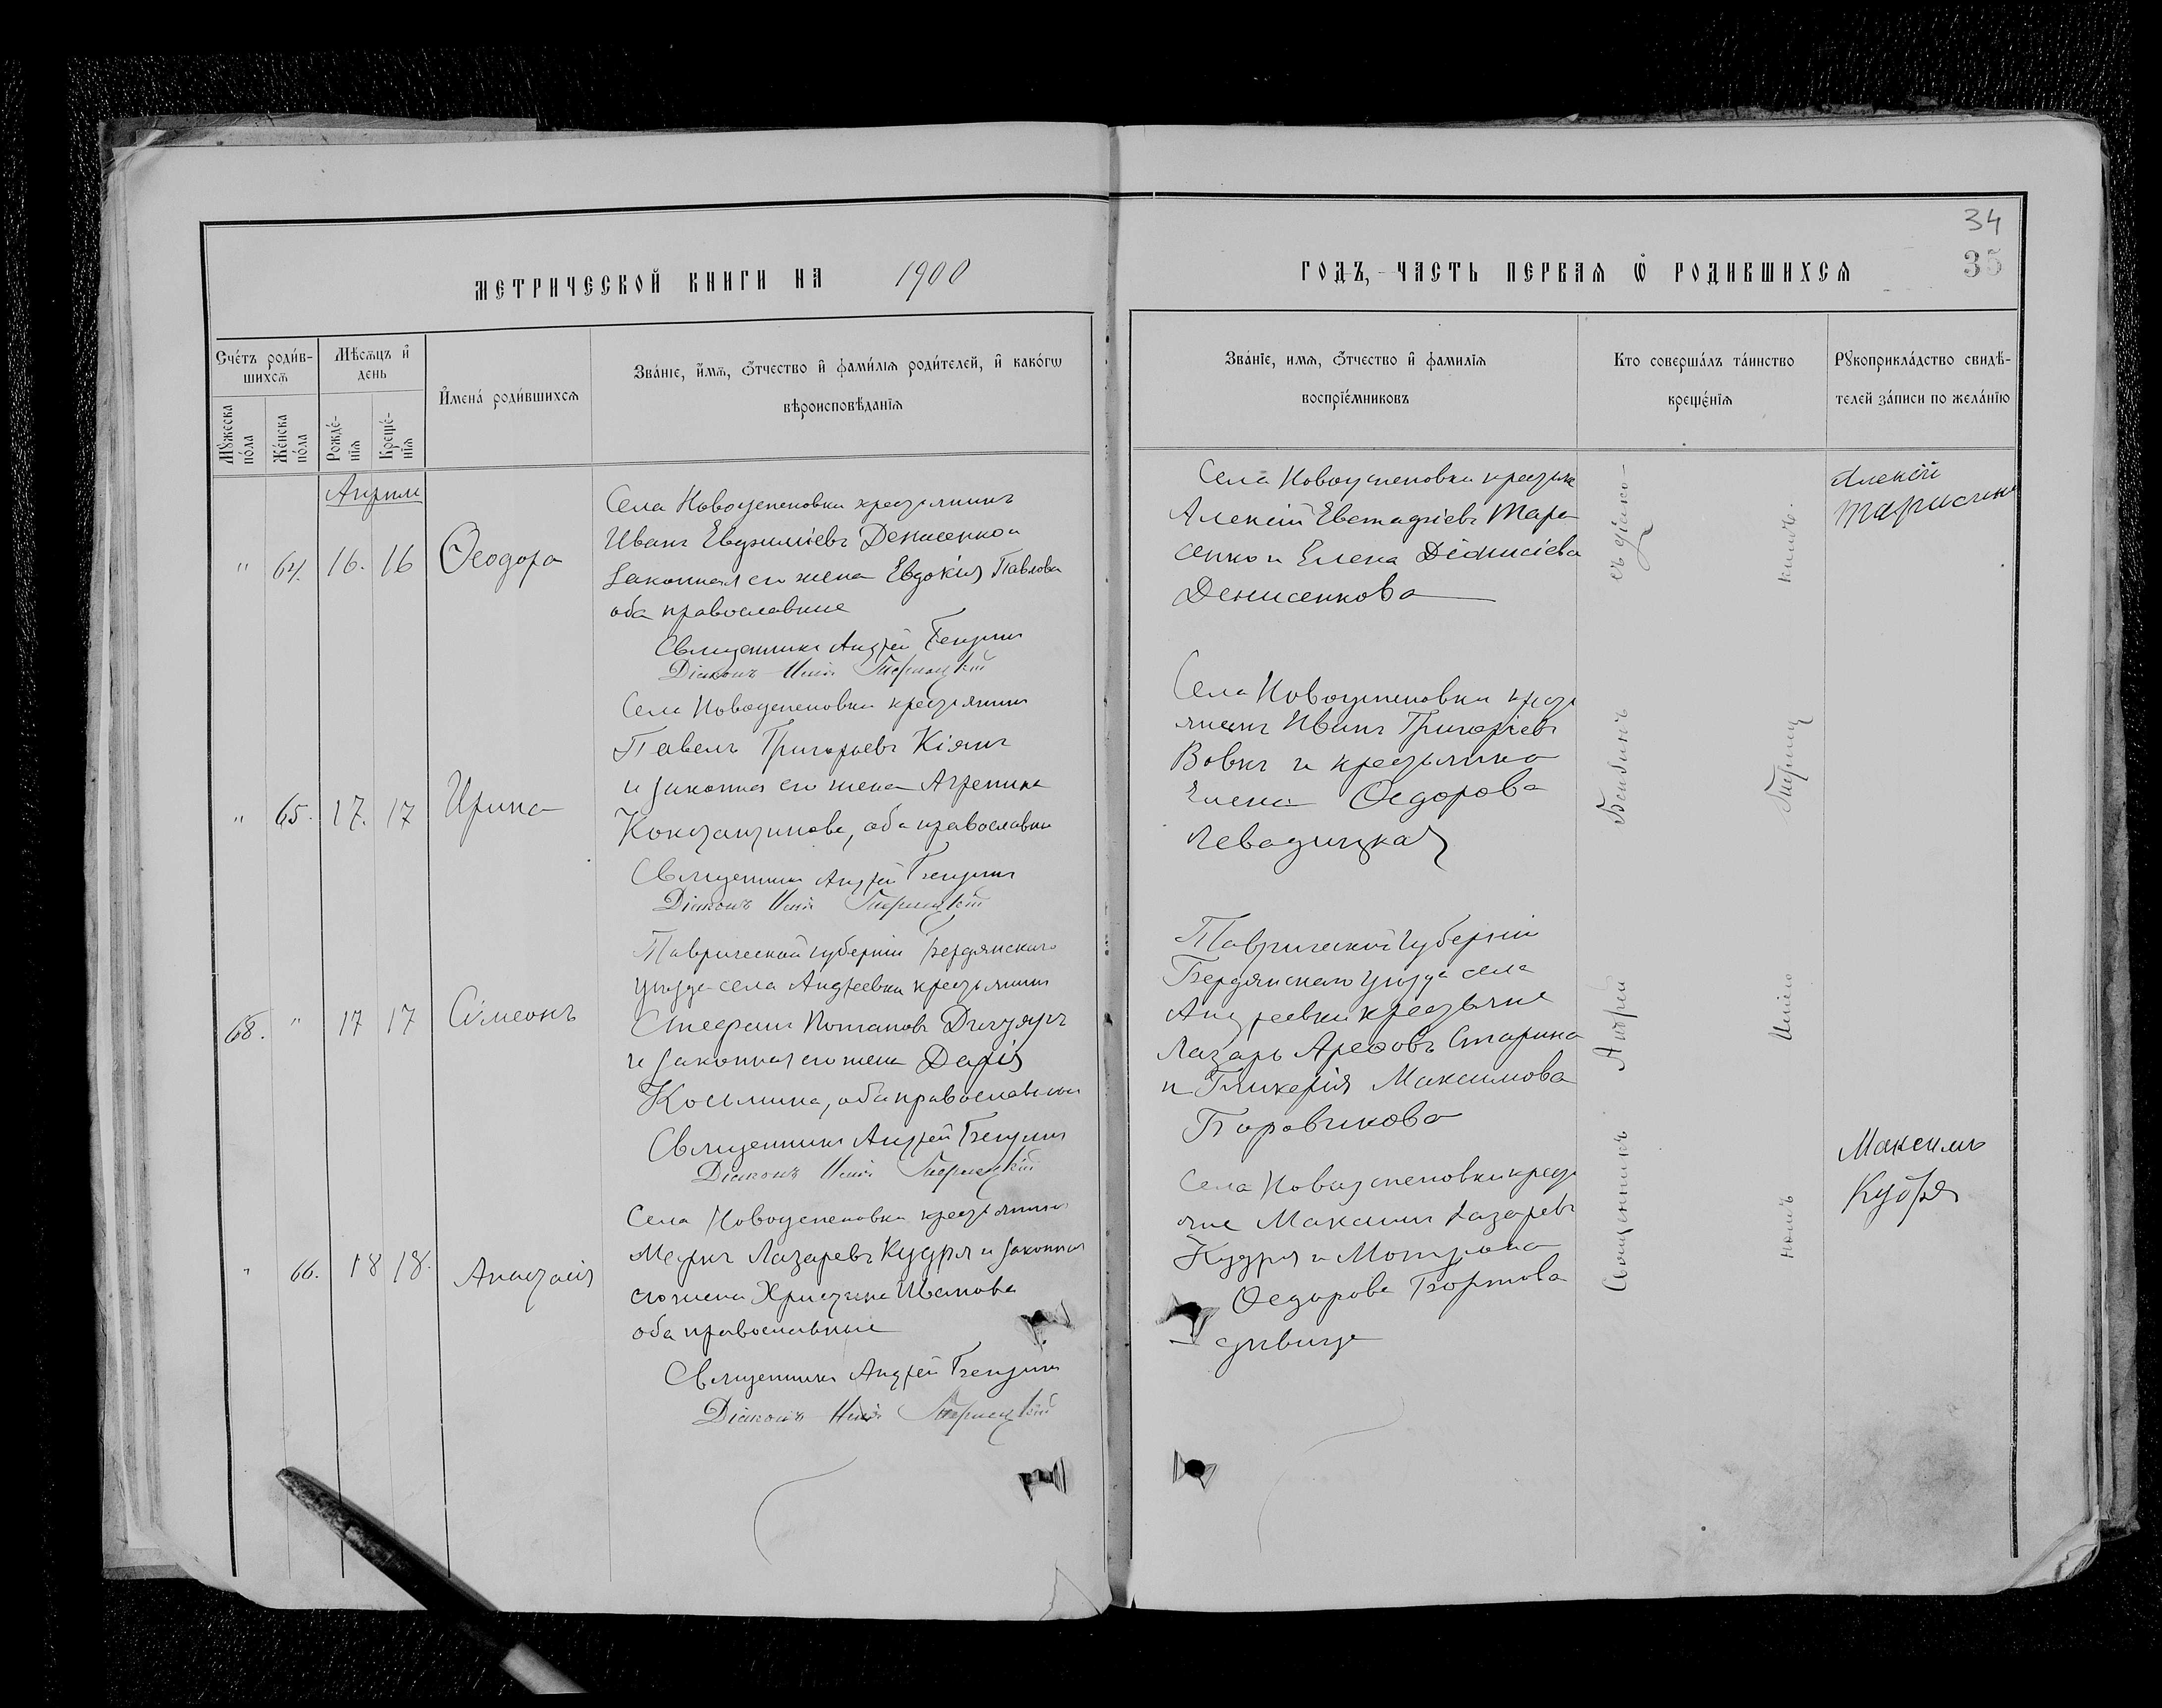 34
35
МЕТРИЧЕСКОЙ КНИГИ НА 1900
ГОДЪ, ЧАСТЬ ПЕРВАЯ Ѿ РОДИВШИХСЯ
Счéтъ роди́в-
шихсѧ
Мѣсѧцъ и҆
день
И҆мена́ роди́вшихсѧ
Зва́нїе, и҆́мѧ, ѻ҆́тчество и҆ фами́лїѧ роди́телей, и҆ како́гѡ
вѣроисповѣ́данїѧ
Мꙋ́жеска
по́ла
Же́нска
по́ла
Рожде́-
нїѧ
Креще́-
нїѧ
Зва́нїе, имѧ, ѻ҆́тчество и҆ фамилїѧ
воспрїе́мниковъ
Кто соверша́лъ та́инство
креще́нїѧ
Рꙋкоприкла́дство свидѣ́-
телей за́писи по жела́нїю
Апрѣль
" 64. 16. 16 Ѳеодора
Села Новоуспеновки крестьянинъ
Иванъ Евѳиміевъ Денисенко и
законная его жена Евдокія Павлова
оба православные
Священникъ Андрей
Діаконъ Илія
Села Новоуспеновки крестьяне
Алексій Евстафіевъ Тара
сенко и Елена Діонисіева
Денисенкова
Алексій
Тарасенко
" 65. 17. 17 Ирина
Села Новоуспеновки крестьянинъ
Павелъ Григорьевъ Кіянъ
и законная его жена Агрепина
Константинова, оба православные
Священникъ Андрей
Діаконъ Илія
Села Новоуспеновки кресть
янинъ Иванъ Григоріевъ
Вовкъ и крестьянка
Елена Ѳедорова
Левадицкая
68. " 17 17 Сѵмеонъ
Таврической губерніи Бердянскаго
уѣзда села Андреевки крестьянинъ
Стефанъ Потаповъ
и законная его жена Дарія
Косьмина, оба православные
Священникъ Андрей
Діаконъ Илія
Таврической губерніи
Бердянскаго уѣзда села
Андреевки крестьяне
Лазарь Ареѳовъ Старина
и Гликерія Максимова
Боровикова
" 66. 18 18. Анастасія
Села Новоуспеновки крестьянинъ
Маркъ Лазаревъ Кудря и законная
его жена Христина Иванова
оба православные
Священникъ Андрей
Діаконъ Илія
Села Новоуспеновки кресть
яне Максимъ Лазаревъ
Кудря и Мотрона
Ѳедорова
дѣвица
Максимъ
Кудря
Священникъ Андрей
съ діако-
номъ Иліею